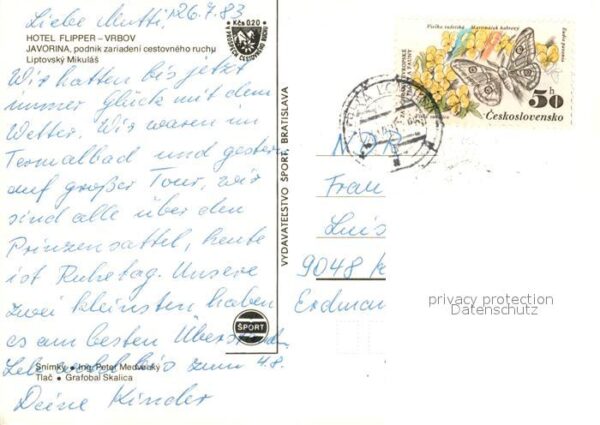 Liebe Mutti, 26.7.83
HOTEL FLIPPER – VRBOV
JAVORINA, podnik zariadení cestovného ruchu
Liptovský Mikuláš
Kčs 0.20
Wir hatten bis jetzt
immer Glück mit dem
Wetter. Wir waren im
Termalbad und gestern
auf großer Tour, wir
sind alle über den
Prinzensattel, heute
ist Ruhetag. Unsere
zwei kleinsten haben
es am besten überstand.
Lebe wohl bis zum 4.8.
Deine Kinder
Snímky • Ing. Peter Medvecký
Tlač • Grafobal Skalica
VYDAVATEĽSTVO ŠPORT, BRATISLAVA
ŠPORT
50 h
Československo
Frau
Luis
9048 K
Erdman
privacy protection
Datenschutz